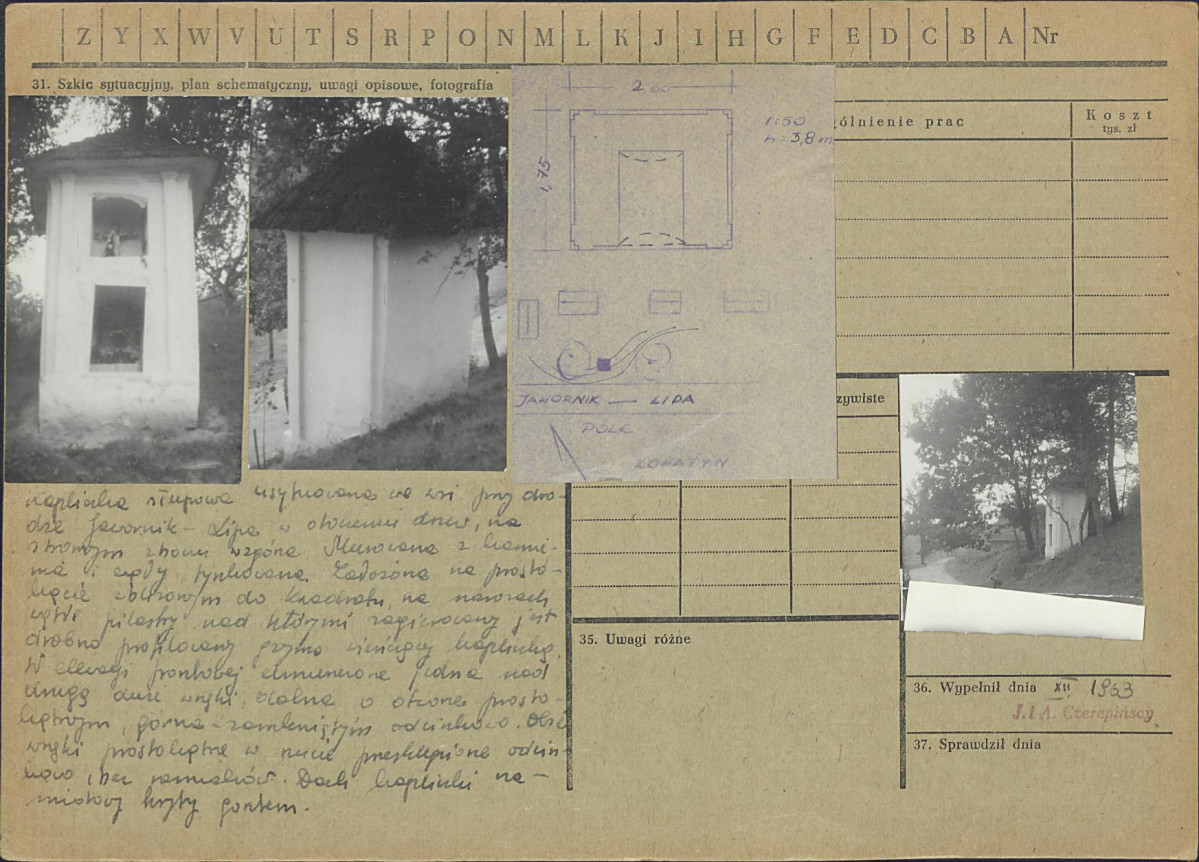 Z Y X W V U T S R P O N M L K J I H G F E D C B A Nr
31. Szkic sytuacyjny, plan schematyczny, uwagi opisowe, fotografia
2,00
1:50
h=3,8m
1,75
JAWORNIK — LIPA
POLE
ŁOMATYN
ólnienie prac
Koszt
tys. zł
zywiste
kapliczka słupowa usytuowana we wsi przy dro-
dze Jawornik - Lipa w otoczeniu drzew, na
stromym zboczu wzgórza. Murowana z kamie-
nia i cegły tynkowana. Założona na prosto-
kącie zbliżonym do kwadratu, na narożach
pilastry nad którymi zagierowany jest
drobno profilowany gzyms wieńczący kapliczkę.
W elewacji frontowej umieszczone jedna nad
drugą dwie wnęki, dolna o otworze prosto-
kątnym, górna - zamkniętym odcinkowo. Obie
wnęki prostokątne w rzucie przesklepione odcin-
kowo. Dach kapliczki na-
miotowy kryty gontem.
35. Uwagi różne
36. Wypełnił dnia XII 1963
J. i A. Czerepińscy
37. Sprawdził dnia